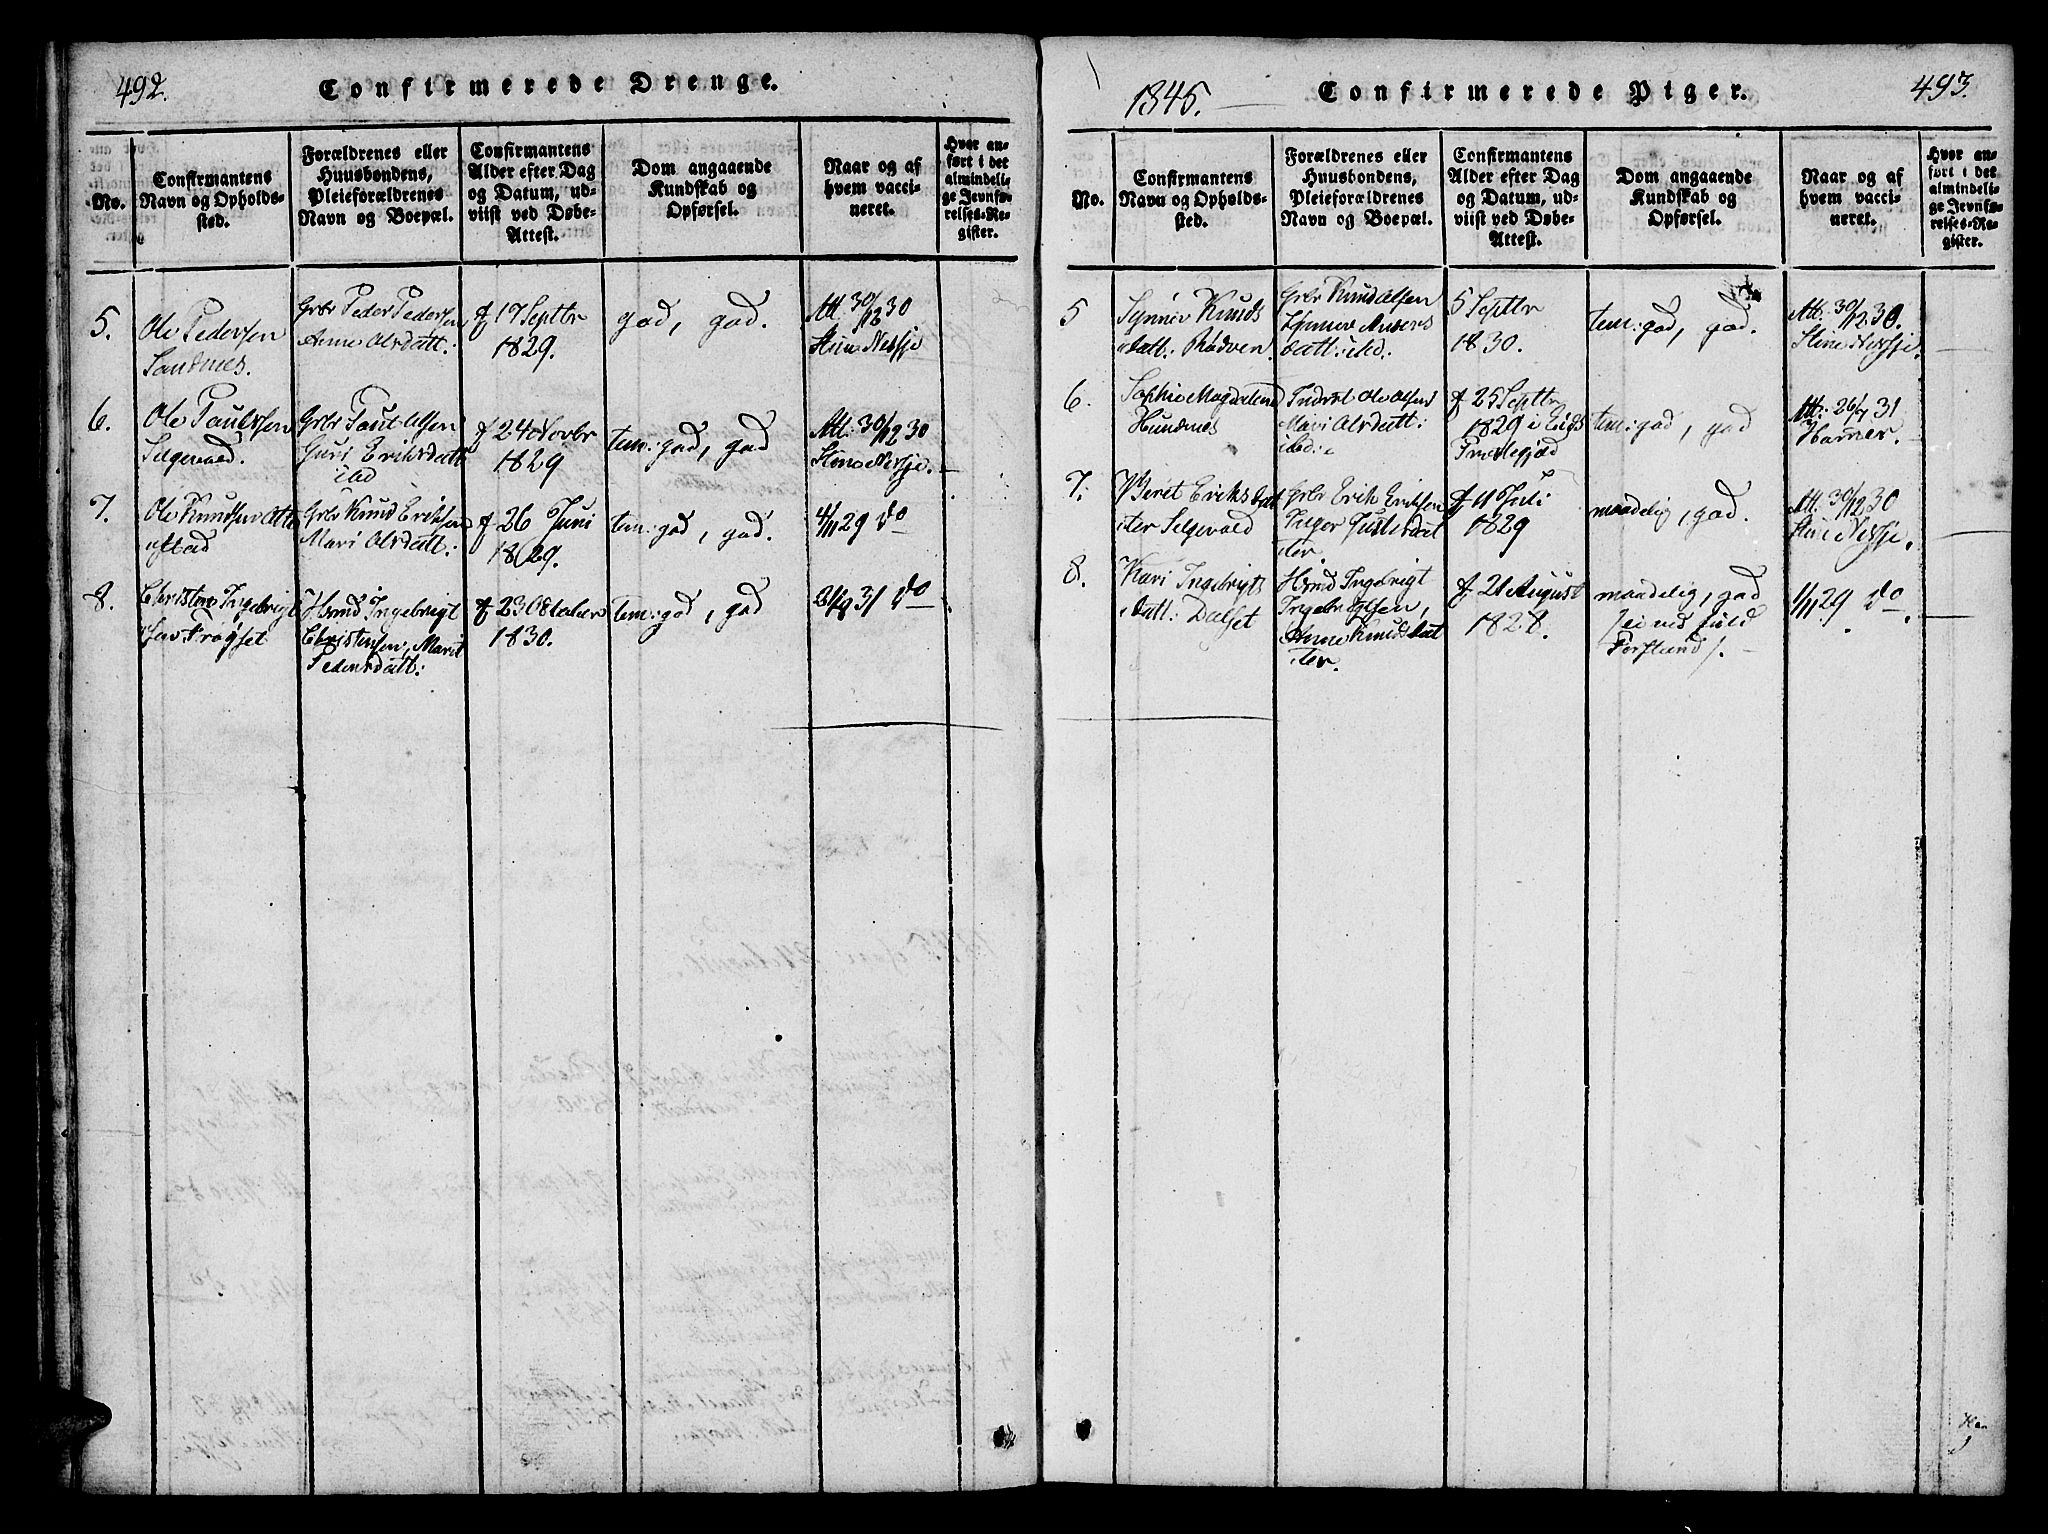 492.
Confirmerede Drenge.
No.
Confirmantens
Navn og Opholds-
sted.
Forældrenes eller
Huusbondens,
Pleieforældrenes
Navn og Boepæl.
Confirmantens
Alder efter Dag
og Datum, ud-
viist ved Døbe-
Attest.
Dom angaaende
Kundskab og
Opførsel.
Naar og af
hvem vacci-
neret.
Hvor an-
ført i det
almindeli-
ge Jevnfø-
relses-Re-
gister.
5.
Ole Pedersen
Sandnes.
Grbr Peder Pedersen
Anne Olsdatt:
f 17 Septbr
1829.
god, god.
Att. 30/12 30
Stine Nessje
6.
Ole Paulsen
Selgevold.
Grbr Paul Olsen
Guri Eriksdatt
ibd
f 24 Novbr
1829
tem: god, god
Att: 30/12 30
Stine Nessje.
7.
Ole Knudsen
Grbr Knud Eriksen
Mari Olsdatt:
f 26 Juni
1829.
tem: god, god.
4/11 29 do
8.
Christen Ingebrigt
sen Trøgset
Hsmd Ingebrigt
Christensen, Marit
Pedersdatt:
f 23 October
1830.
tem: god, god
31 do
1845.
Confirmerede Piger.
493.
No.
Confirmantens
Navn og Opholds-
sted.
Forældrenes eller
Huusbondens,
Pleieforældrenes
Navn og Boepæl.
Confirmantens
Alder efter Dag
og Datum, ud-
viist ved Døbe-
Attest.
Dom angaaende
Kundskab og
Opførsel.
Naar og af
hvem vacci-
neret.
Hvor an-
ført i det
almindeli-
ge Jevnfø-
relses-Re-
gister.
5
Synnev Knuds
datt: Rødven.
Grbr Knud Olsen
Synneve Anders
datt: ibd.
5 Septbr
1830.
tem: god, god.
Att: 30/12 30.
Stine Nessje.
6.
Sophie Magdalena
Hundnes
Inderst Ole Olsen
Mari Olsdatt:
ibd:
f 25 Septbr
1829 i Eids
Præstegjæld
tem: god, god
Att: 26/7 31
Harner.
7.
Beret Eriksdat
ter Selgevold
Grbr Erik Eriksen
Inger Justersdat
ter.
f 11 Juli
1829
maadelig, god.
Att. 30/12 30
Stine Nessje.
8.
Kari Ingebrigts
datt: Dalset
Hsmd Ingebrigt
Ingebrigtsen,
Anne Knudsdat
ter.
f 21 August
1828.
maadelig, god
/ei ved fuld
Forstand/.
1/11 29 do